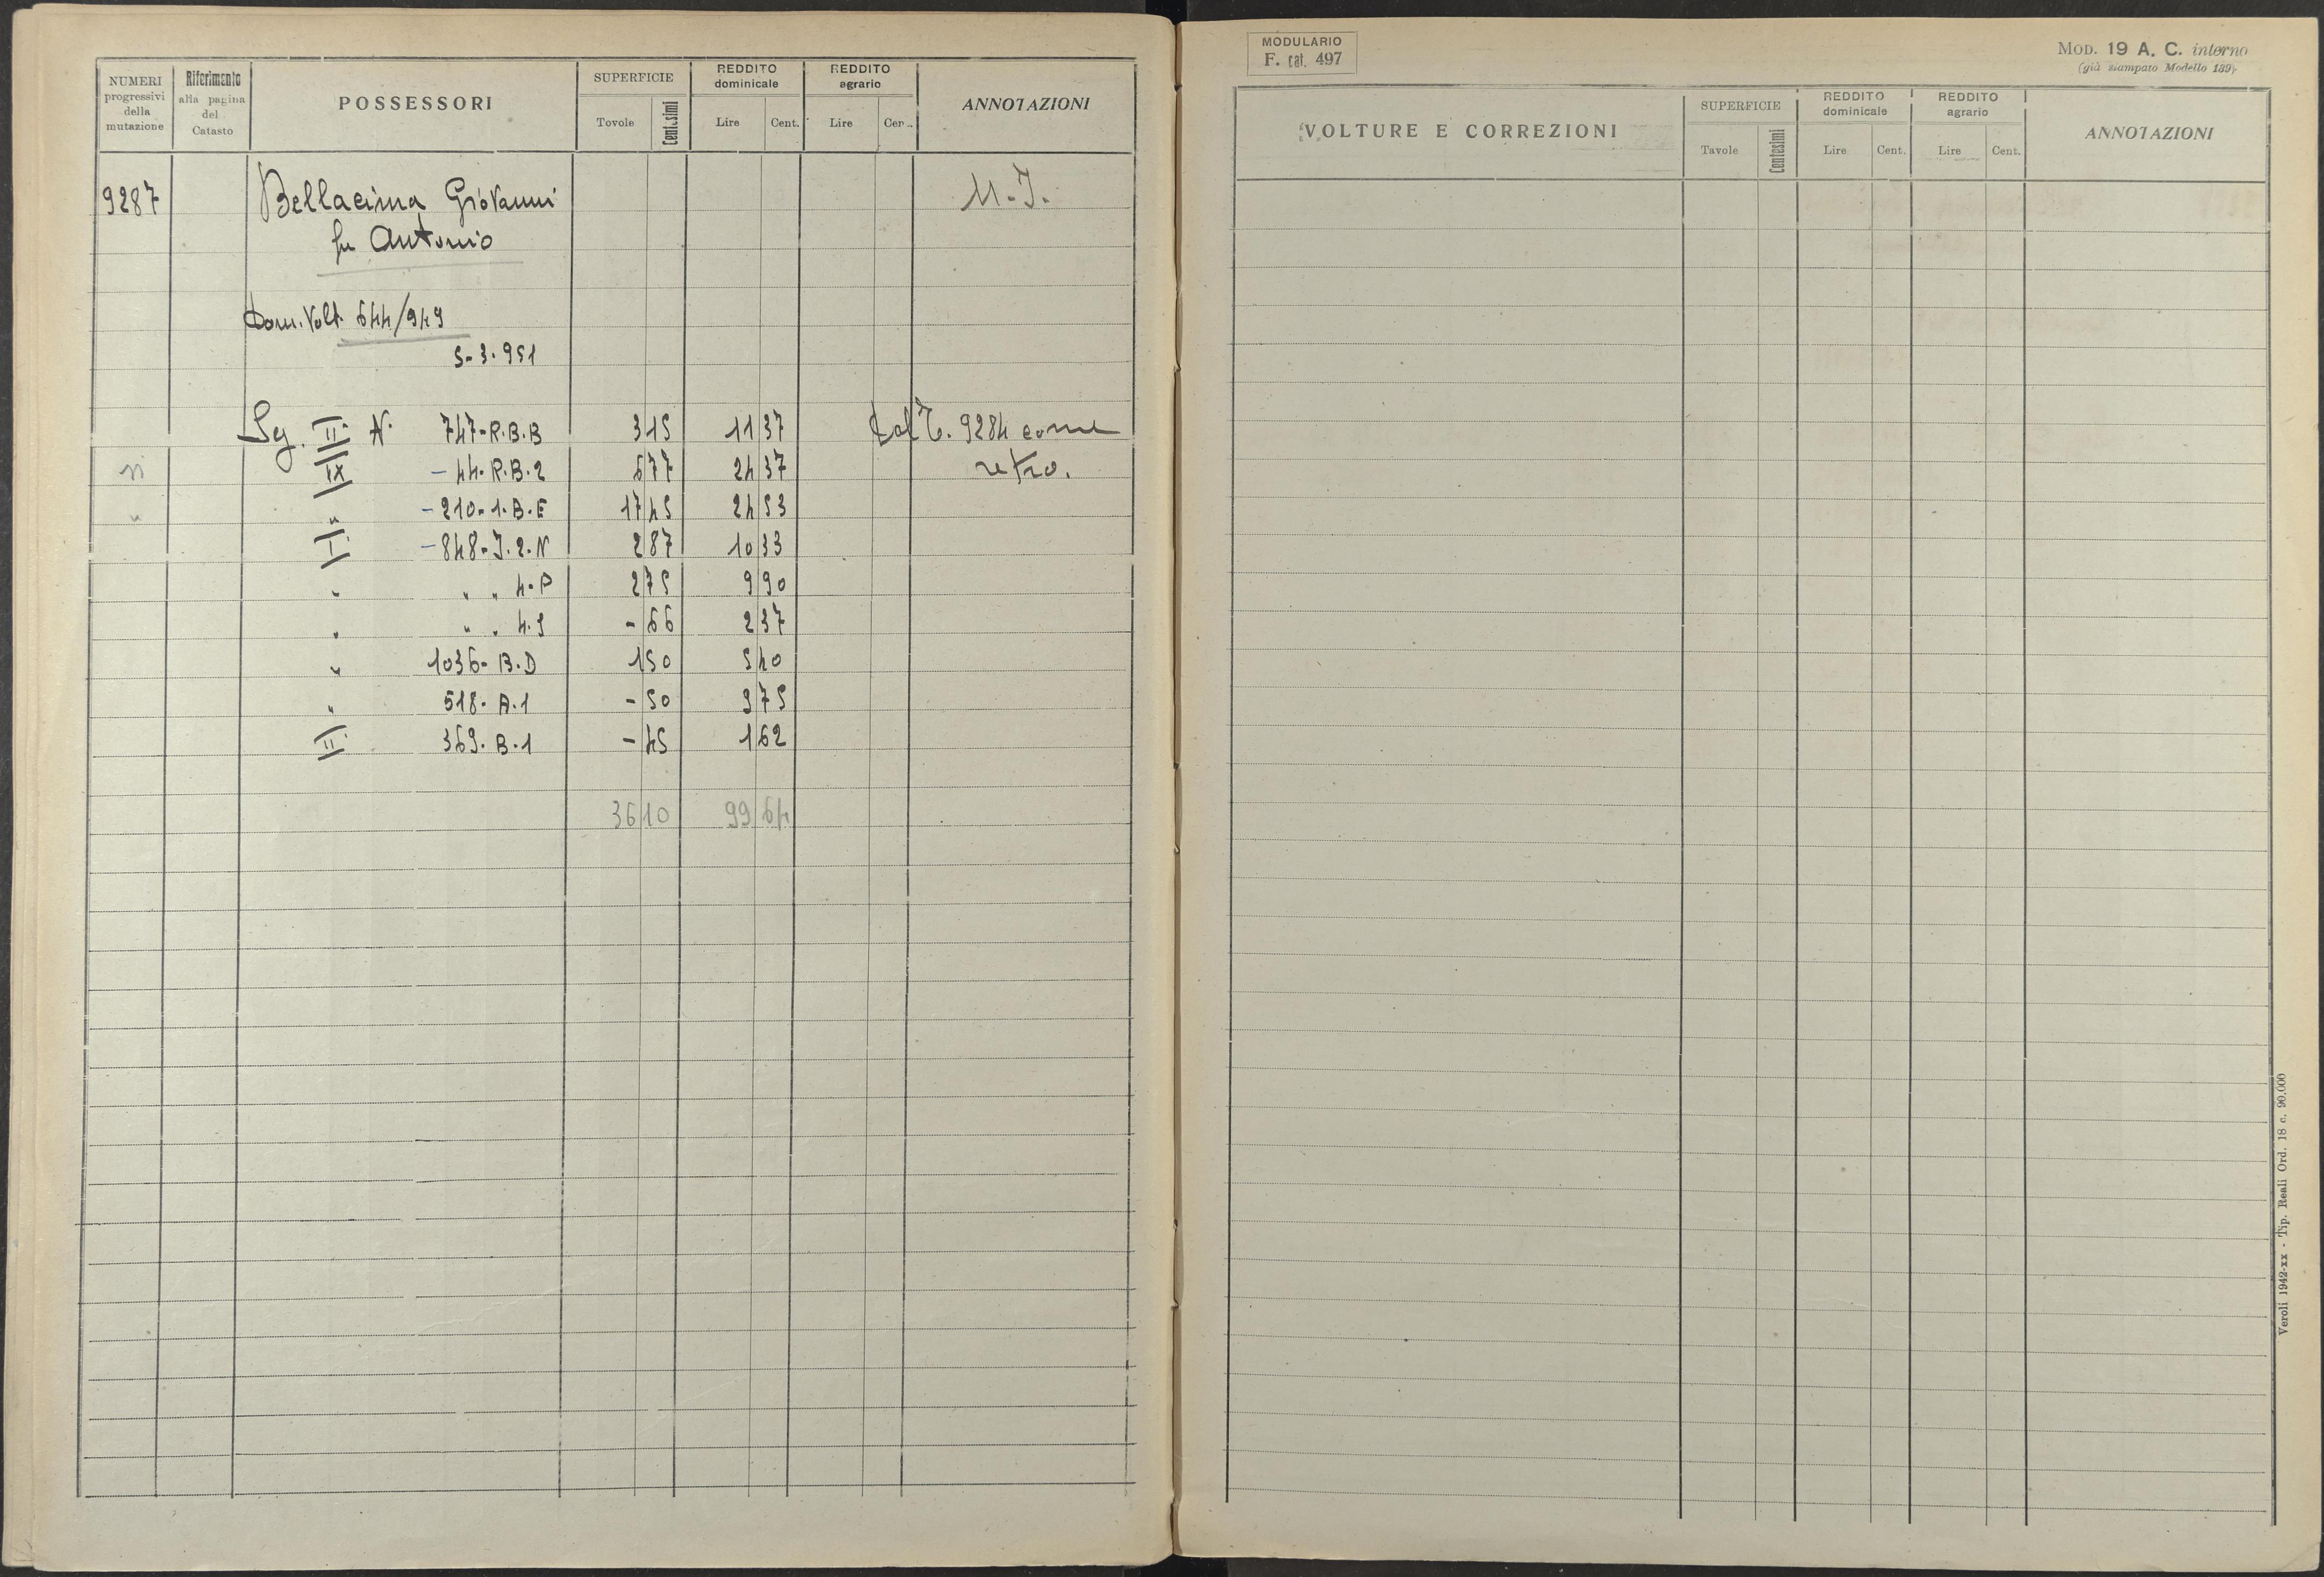 NUMERI progressivi della mutazione | Riferimento alla pagina del Catasto | POSSESSORI | SUPERFICIE Tavole Centesimi | REDDITO dominicale Lire Cent. | REDDITO agrario Lire Cen. | ANNOTAZIONI
9287 Bellacima Giovanni
fu Antonio
Dom. Volt. 644/949
5-3-951
Sg. II N. 747-R.B.B 3 15 11 37 dal T. 9284 come
IX - 44-R.B.2 6 77 24 37 retro.
" - 210-1.B.E 17 45 24 53
I - 848-I.2.N 2 87 10 33
" " " 4.P 2 75 9 90
" " " 4.S - 66 2 37
" 1036-B.D 1 50 5 40
" 518-A.1 - 50 9 75
II 369-B.1 - 45 1 62
36 10 99 64
MODULARIO
F. cat. 497
MOD. 19 A. C. interno
(già stampato Modello 139)
VOLTURE E CORREZIONI | SUPERFICIE Tavole Centesimi | REDDITO dominicale Lire Cent. | REDDITO agrario Lire Cent. | ANNOTAZIONI
Veroli 1942-xx - Tip. Reali Ord. 18 c. 90.000